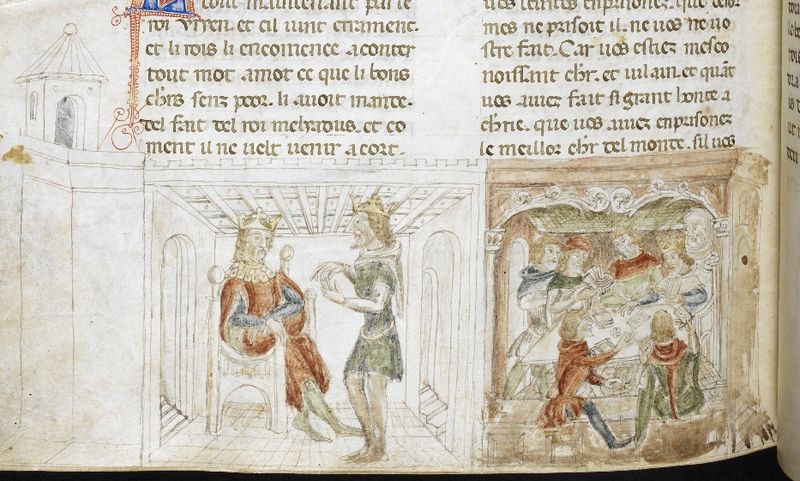 tout maintenant par le
roi vryen. et cil uint errament.
et li rois li encomence aconter
tout mot amot ce que li bons
chrs senz peor. li auoit mande.
del fait del roi melyadus. et co
ment il ne uelt uenir acort.
enprisonez. que
mes ne prisoit il. ne uos ne uo
stre fait. Car uos estiez mesco
noissant chr. et uilain. et quant
uos auiez fait si grant honte a
chrie. que uos auiez enprisonez
le meillor chr del monde. sil uos